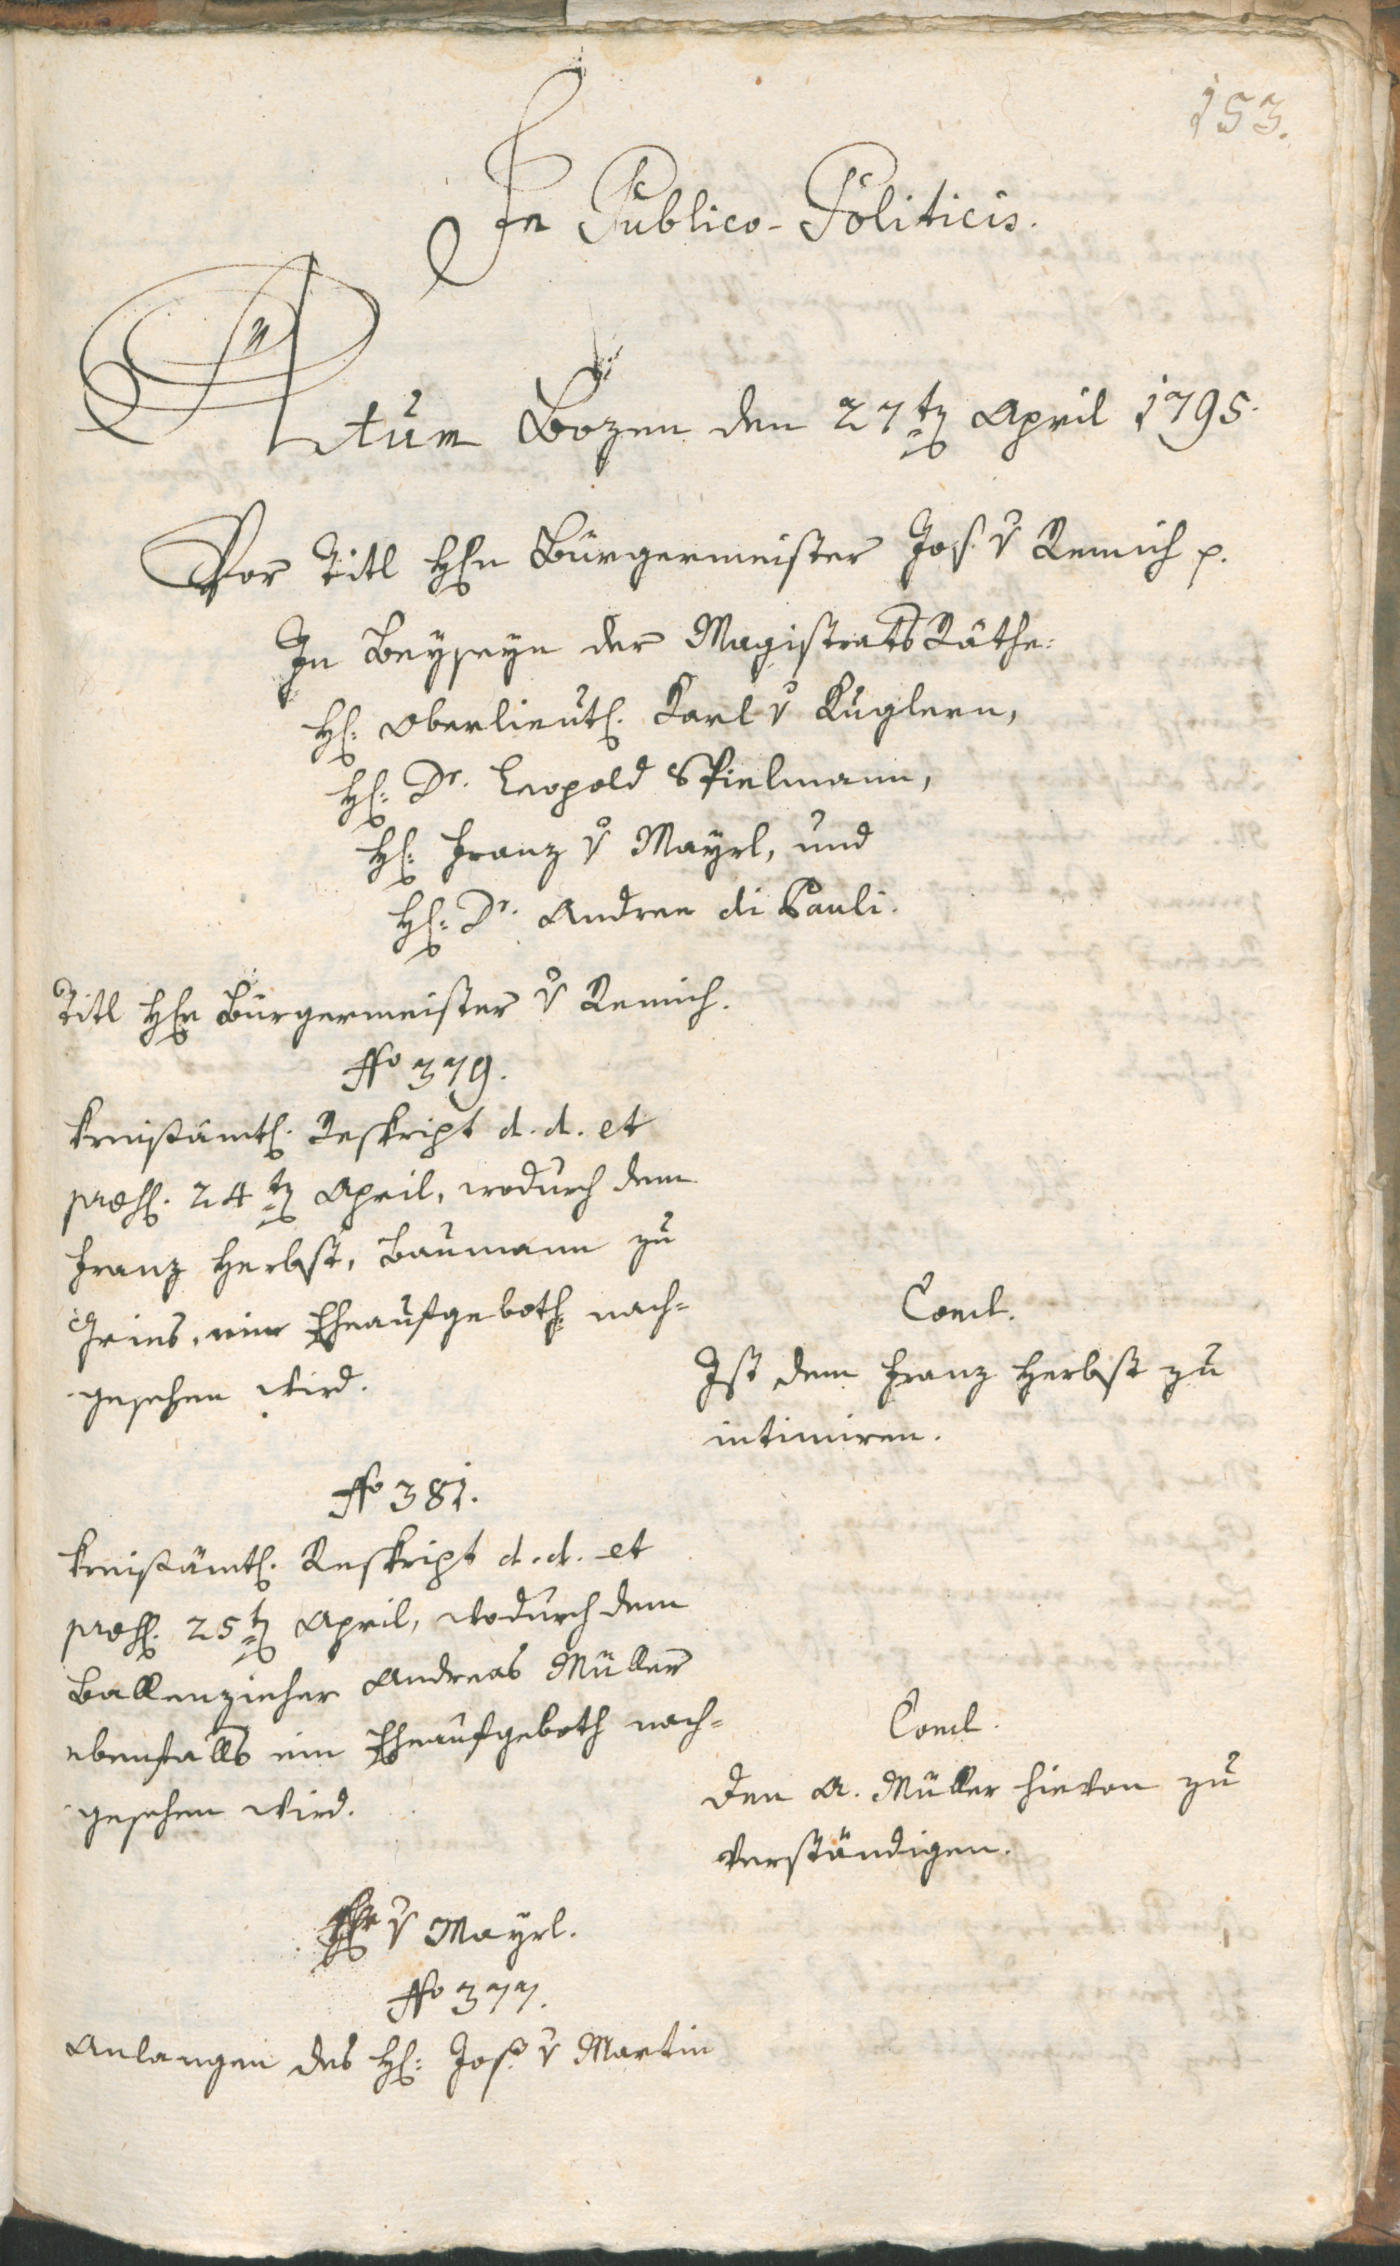 153.
In Publico-Politicis.
Actum Bozen den 27ten April 1795.
Vor Titl Hhn Bürgermeister Jos. v Remich p.
In Beyseyn der Magistrats Räthe:
Hl: Oberlieutl. Karl v Kuglern,
Hl: Dr. Leopold Spielmann,
Hl: Franz v Mayrl, und
Hl: Dr. Andree di Pauli.
Titl Hhn Bürgermeister v Remich.
No 379.
Kreisämtl. Reskript d. d. et
præs. 24ten April, wodurch dem
Franz Herbst, Baumann zu
Gries, ein Eheaufgeboth nach=
gesehen wird.
Concl.
Ist dem Franz Herbst zu
intimiren.
No 381.
Kreisämtl. Reskript d. d. et
præs. 25ten April, wodurch dem
Ballenzieher Andreas Müller
ebenfalls ein Eheaufgeboth nach=
gesehen wird.
Concl.
Den A. Müller hievon zu
verständigen.
Hr v Mayrl.
No 377.
Anlangen des Hl: Jos. v Martin